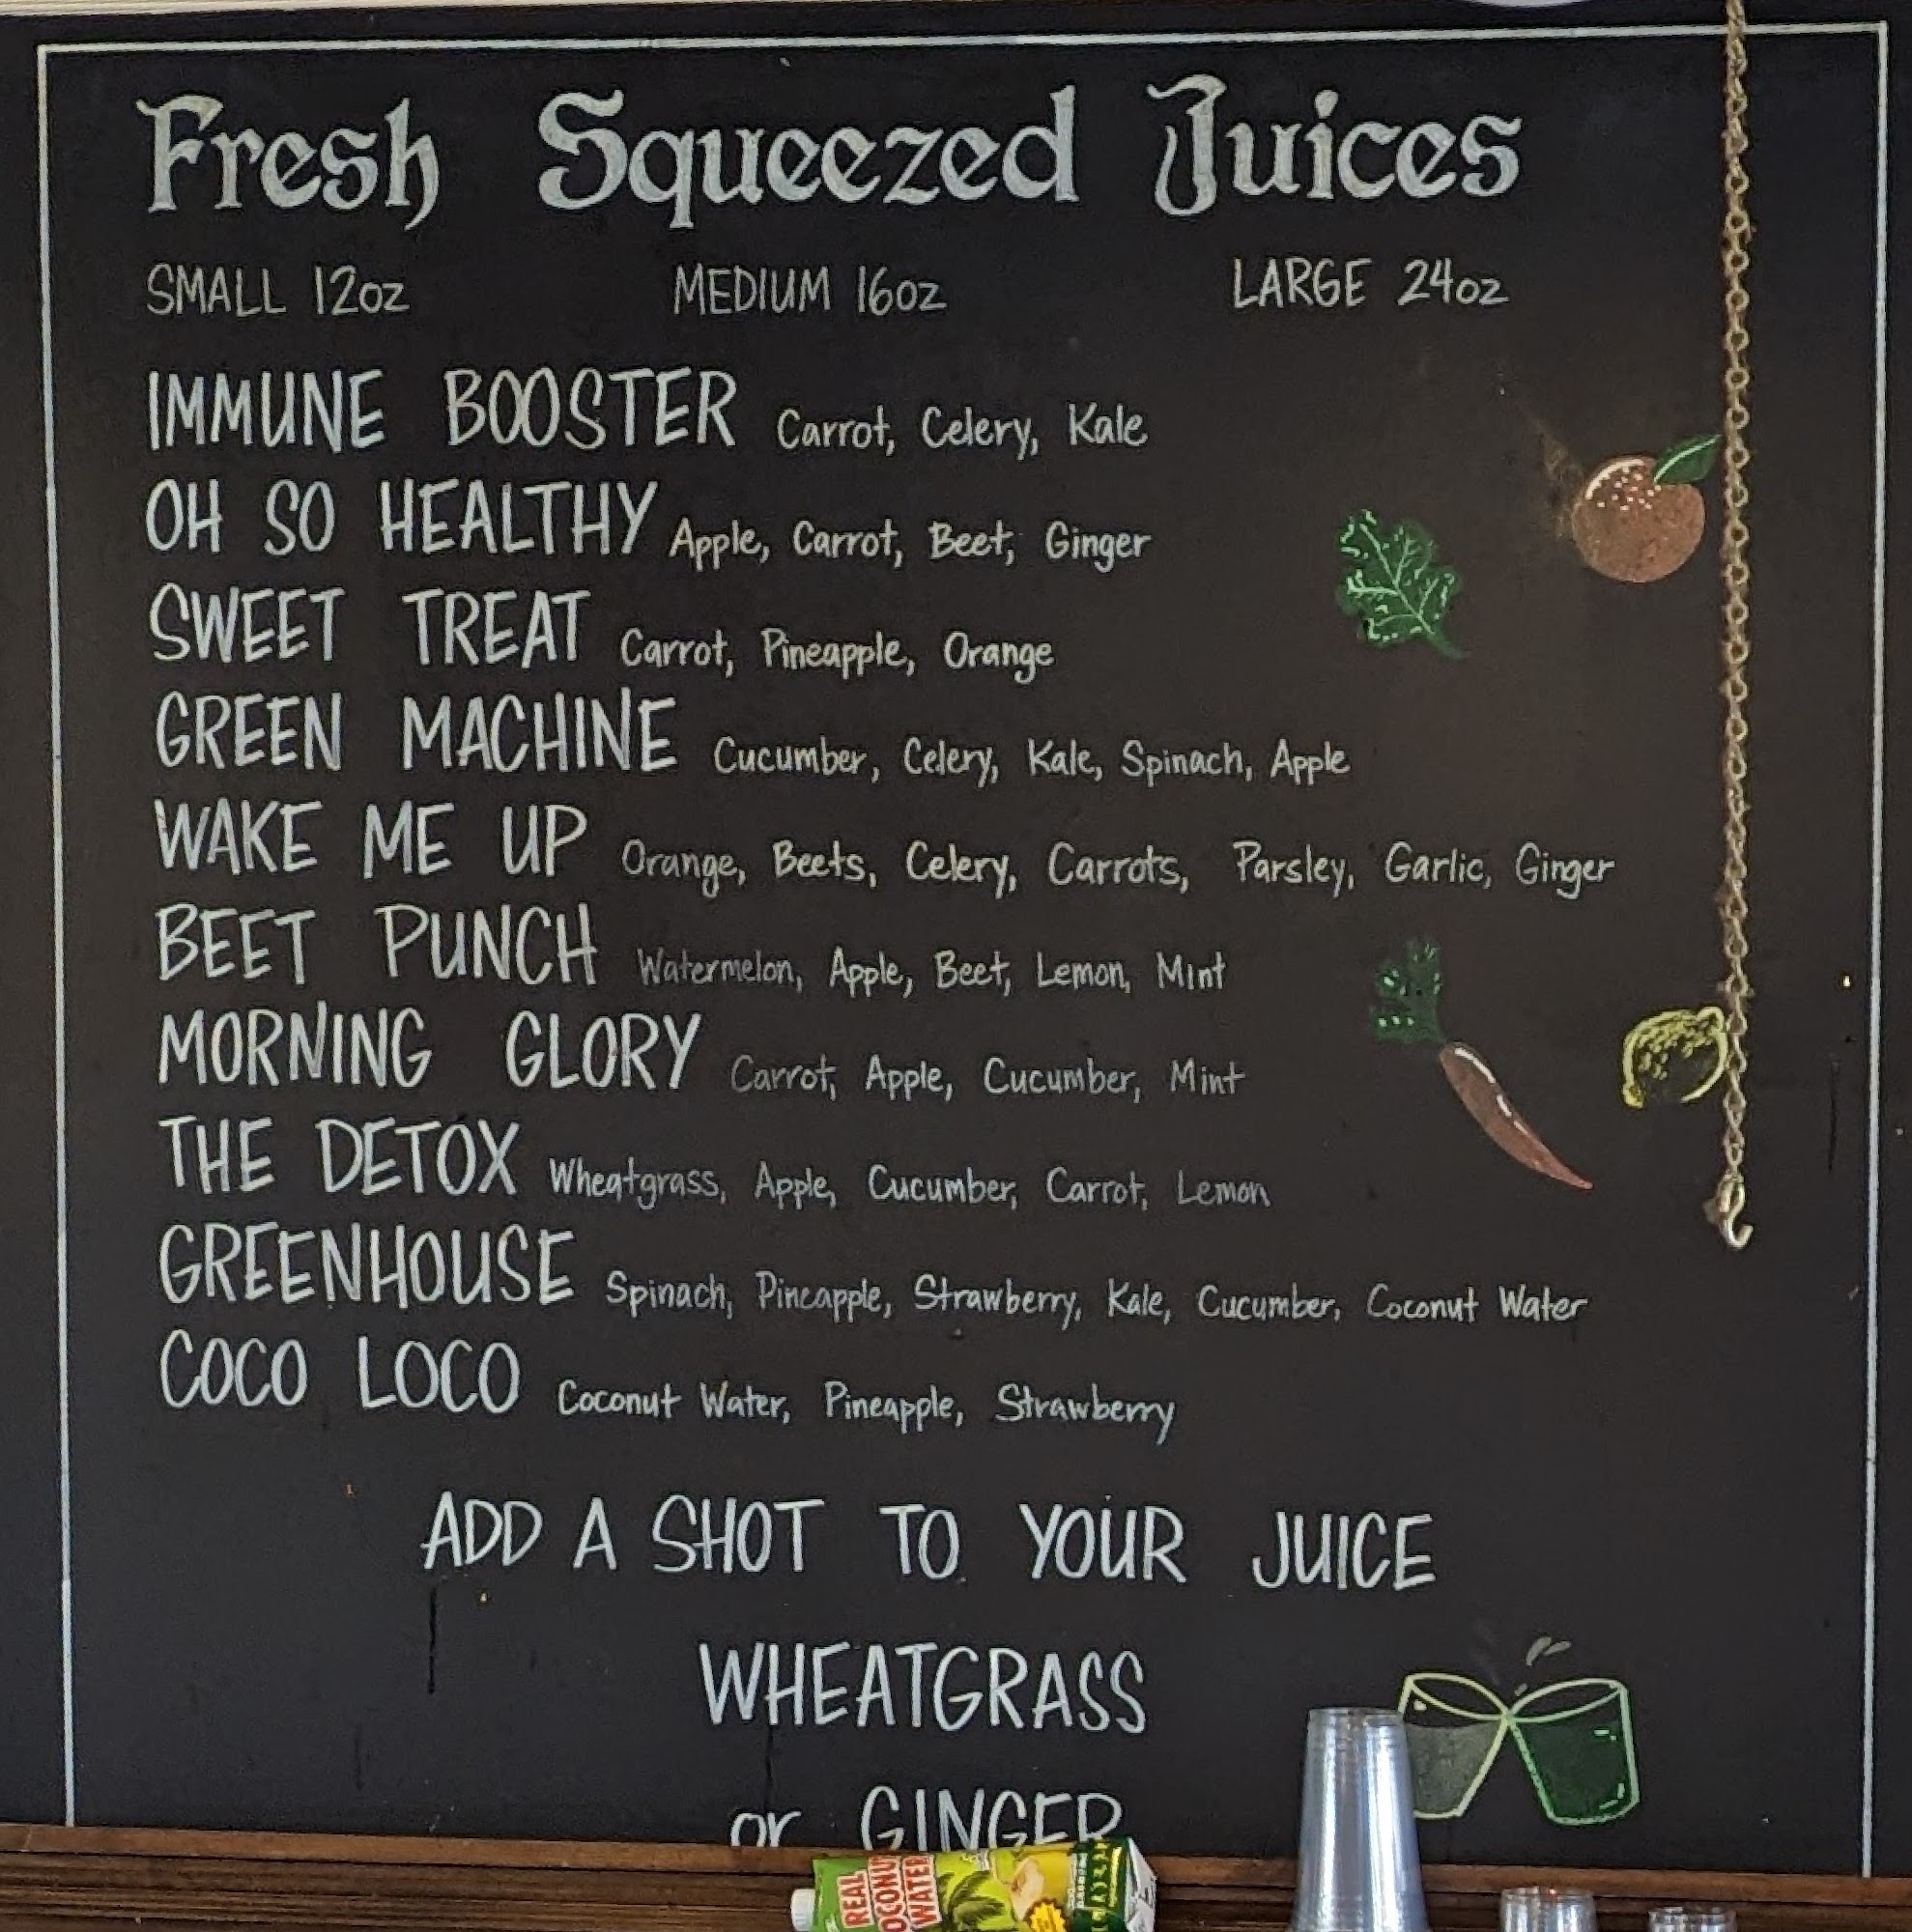 Fresh Squeezed Juices
SMALL 12oz MEDIUM 16oz LARGE 24oz
IMMUNE BOOSTER Carrot, Celery, Kale
OH SO HEALTHY Apple, Carrot, Beet, Ginger
SWEET TREAT Carrot, Pineapple, Orange
GREEN MACHINE Cucumber, Celery, Kale, Spinach, Apple
WAKE ME UP Orange, Beets, Celery, Carrots, Parsley, Garlic, Ginger
BEET PUNCH Watermelon, Apple, Beet, Lemon, Mint
MORNING GLORY Carrot, Apple, Cucumber, Mint
THE DETOX Wheatgrass, Apple, Cucumber, Carrot, Lemon
GREENHOUSE Spinach, Pineapple, Strawberry, Kale, Cucumber, Coconut Water
COCO LOCO Coconut Water, Pineapple, Strawberry
ADD A SHOT TO YOUR JUICE
WHEATGRASS
or GINGER
REAL
COCONUT
WATER